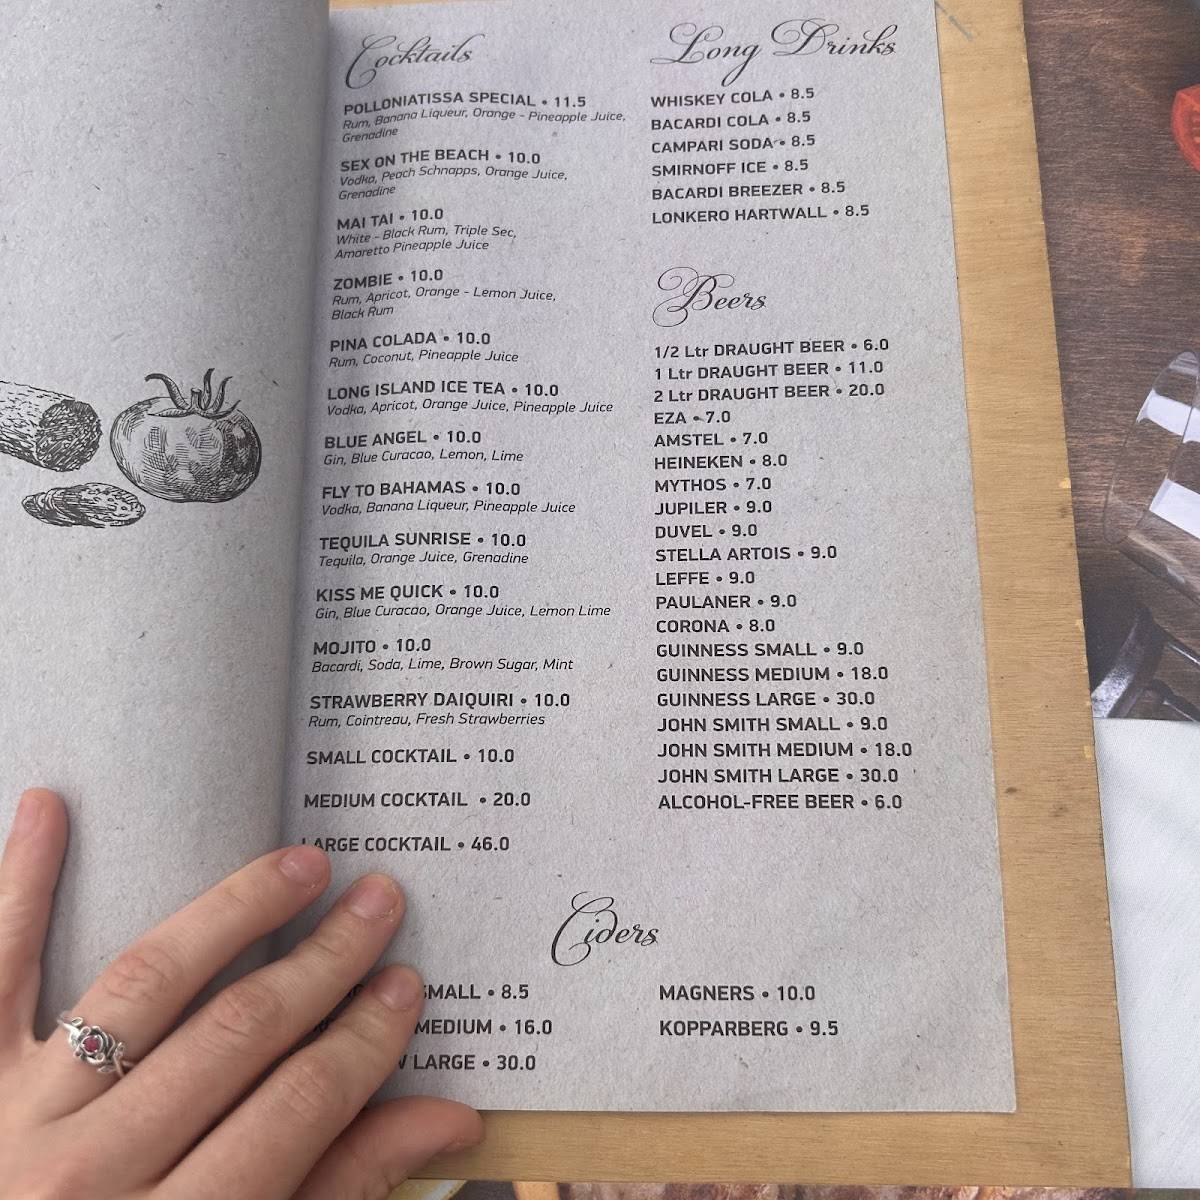 Cocktails
POLLONIATISSA SPECIAL • 11.5
Rum, Banana Liqueur, Orange - Pineapple Juice,
Grenadine
SEX ON THE BEACH • 10.0
Vodka, Peach Schnapps, Orange Juice,
Grenadine
MAI TAI • 10.0
White - Black Rum, Triple Sec,
Amaretto Pineapple Juice
ZOMBIE • 10.0
Rum, Apricot, Orange - Lemon Juice,
Black Rum
PINA COLADA • 10.0
Rum, Coconut, Pineapple Juice
LONG ISLAND ICE TEA • 10.0
Vodka, Apricot, Orange Juice, Pineapple Juice
BLUE ANGEL • 10.0
Gin, Blue Curacao, Lemon, Lime
FLY TO BAHAMAS • 10.0
Vodka, Banana Liqueur, Pineapple Juice
TEQUILA SUNRISE • 10.0
Tequila, Orange Juice, Grenadine
KISS ME QUICK • 10.0
Gin, Blue Curacao, Orange Juice, Lemon Lime
MOJITO • 10.0
Bacardi, Soda, Lime, Brown Sugar, Mint
STRAWBERRY DAIQUIRI • 10.0
Rum, Cointreau, Fresh Strawberries
SMALL COCKTAIL • 10.0
MEDIUM COCKTAIL • 20.0
LARGE COCKTAIL • 46.0
Long Drinks
WHISKEY COLA • 8.5
BACARDI COLA • 8.5
CAMPARI SODA • 8.5
SMIRNOFF ICE • 8.5
BACARDI BREEZER • 8.5
LONKERO HARTWALL • 8.5
Beers
1/2 Ltr DRAUGHT BEER • 6.0
1 Ltr DRAUGHT BEER • 11.0
2 Ltr DRAUGHT BEER • 20.0
EZA • 7.0
AMSTEL • 7.0
HEINEKEN • 8.0
MYTHOS • 7.0
JUPILER • 9.0
DUVEL • 9.0
STELLA ARTOIS • 9.0
LEFFE • 9.0
PAULANER • 9.0
CORONA • 8.0
GUINNESS SMALL • 9.0
GUINNESS MEDIUM • 18.0
GUINNESS LARGE • 30.0
JOHN SMITH SMALL • 9.0
JOHN SMITH MEDIUM • 18.0
JOHN SMITH LARGE • 30.0
ALCOHOL-FREE BEER • 6.0
Ciders
SMALL • 8.5
MEDIUM • 16.0
LARGE • 30.0
MAGNERS • 10.0
KOPPARBERG • 9.5